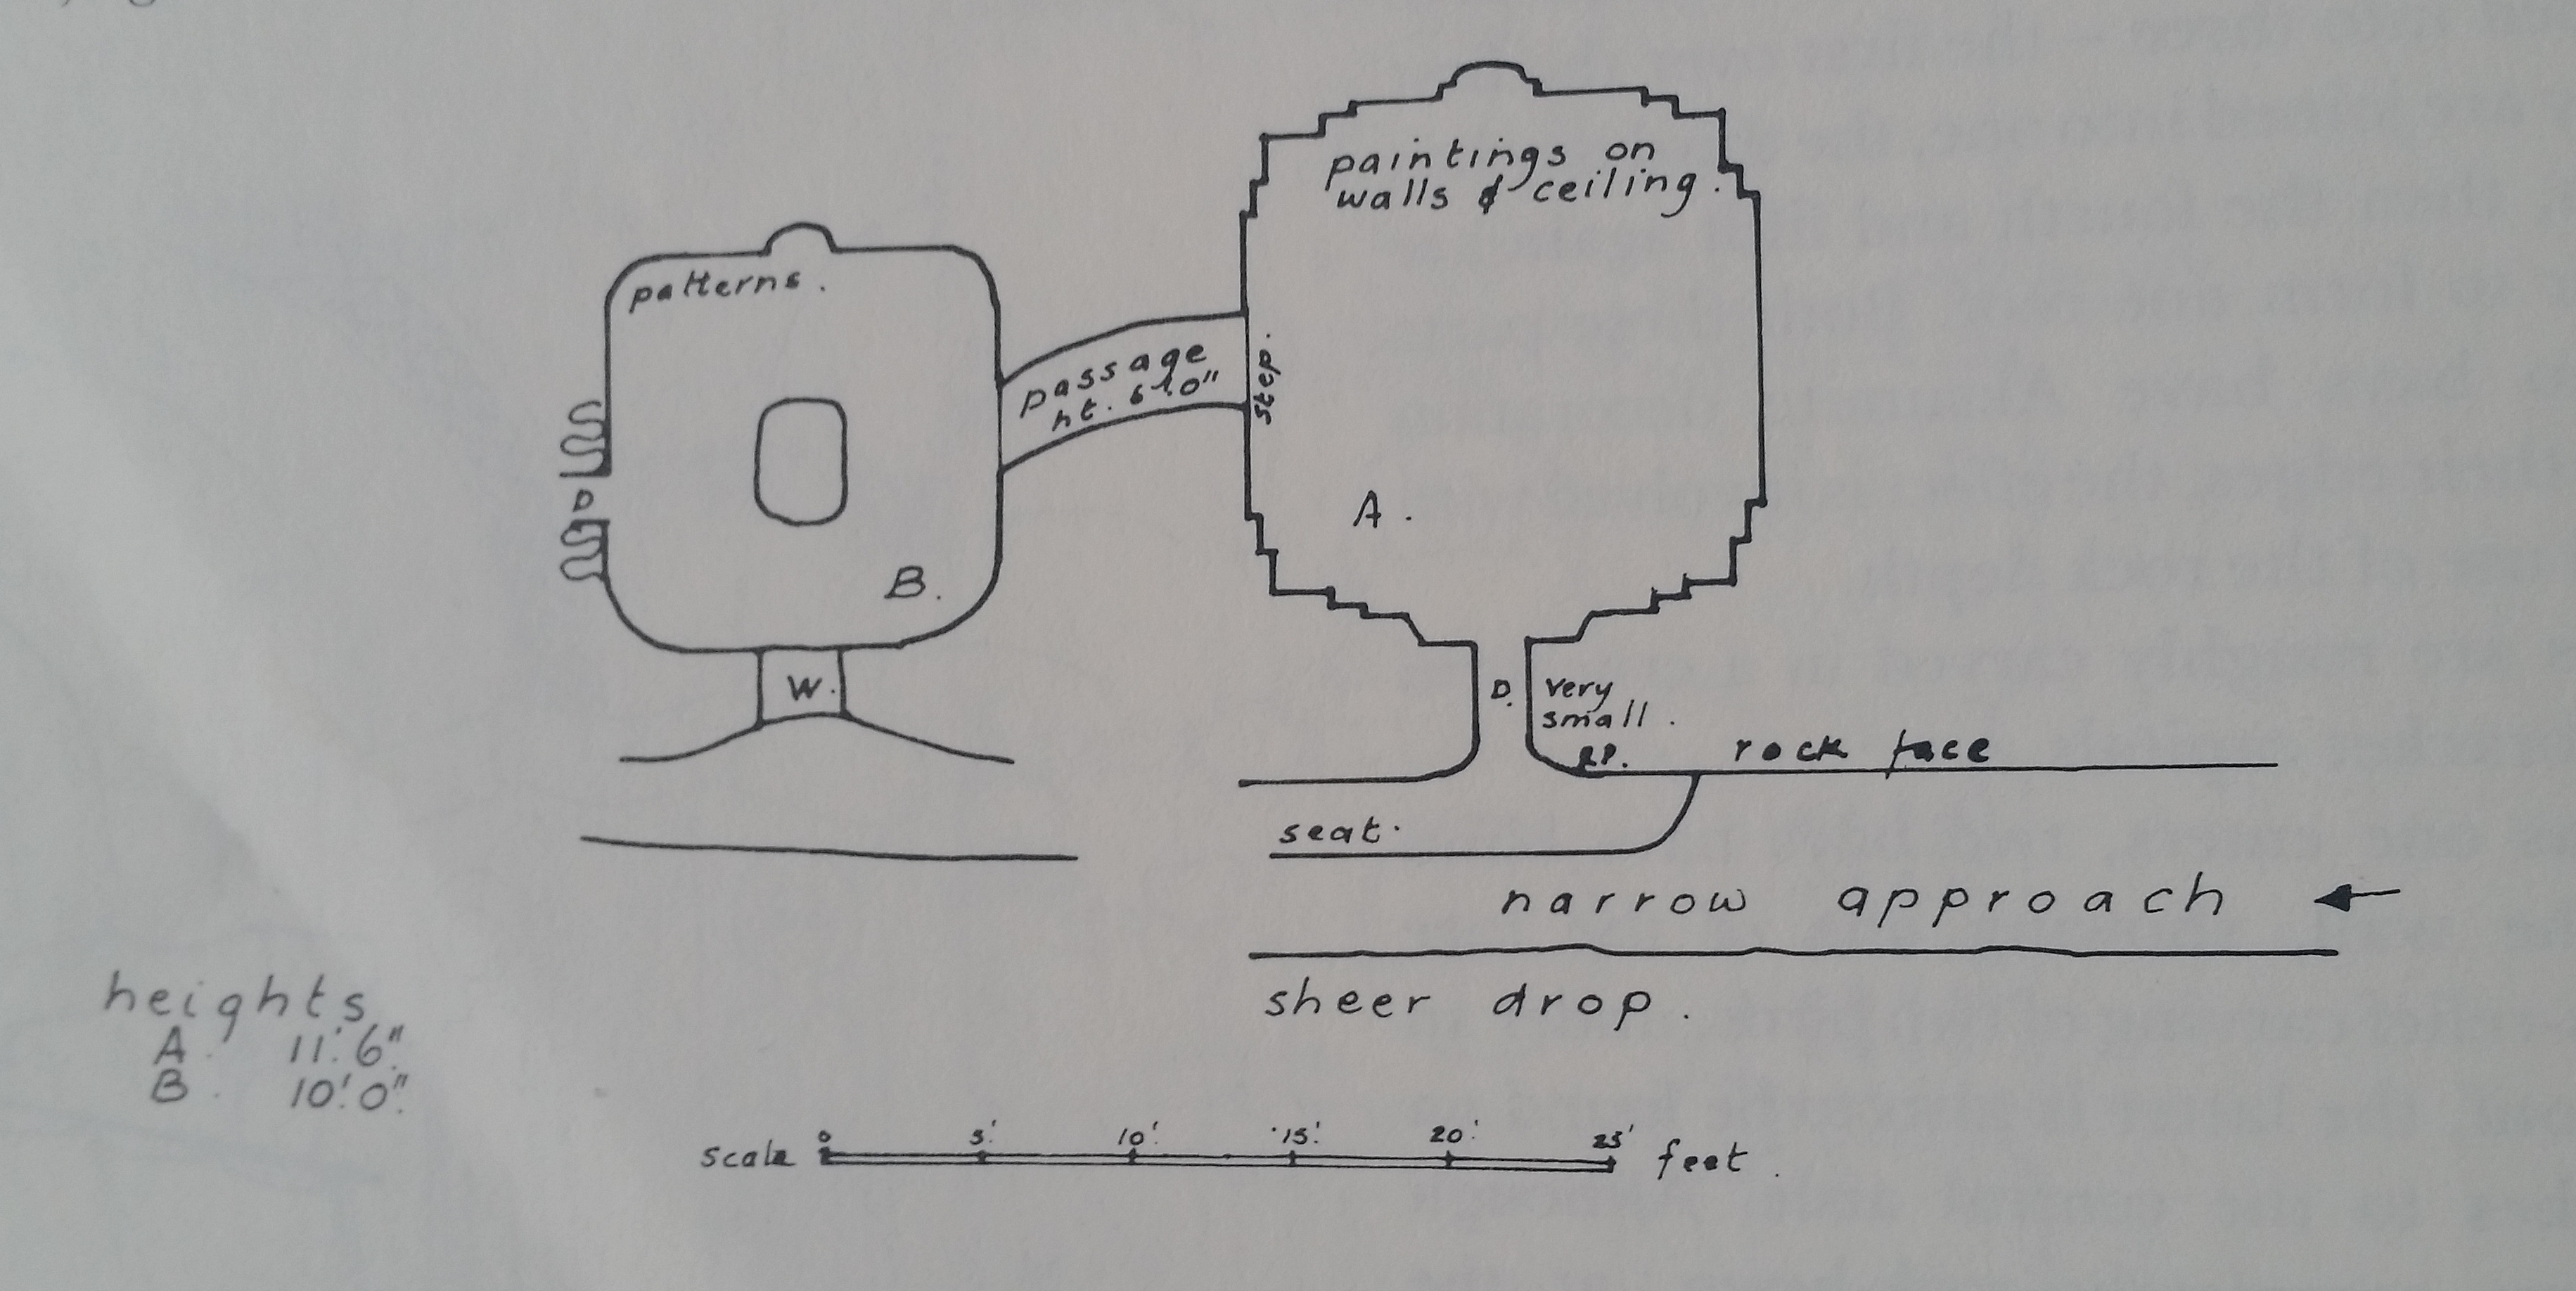 paintings on
walls & ceiling.
patterns.
passage
ht. 6'.0"
step.
A.
B.
D
W.
D.
very
small.
rock face
seat.
narrow approach
sheer drop.
heights
A. 11'.6".
B. 10'.0".
scale 0 5' 10' 15' 20' 25' feet.